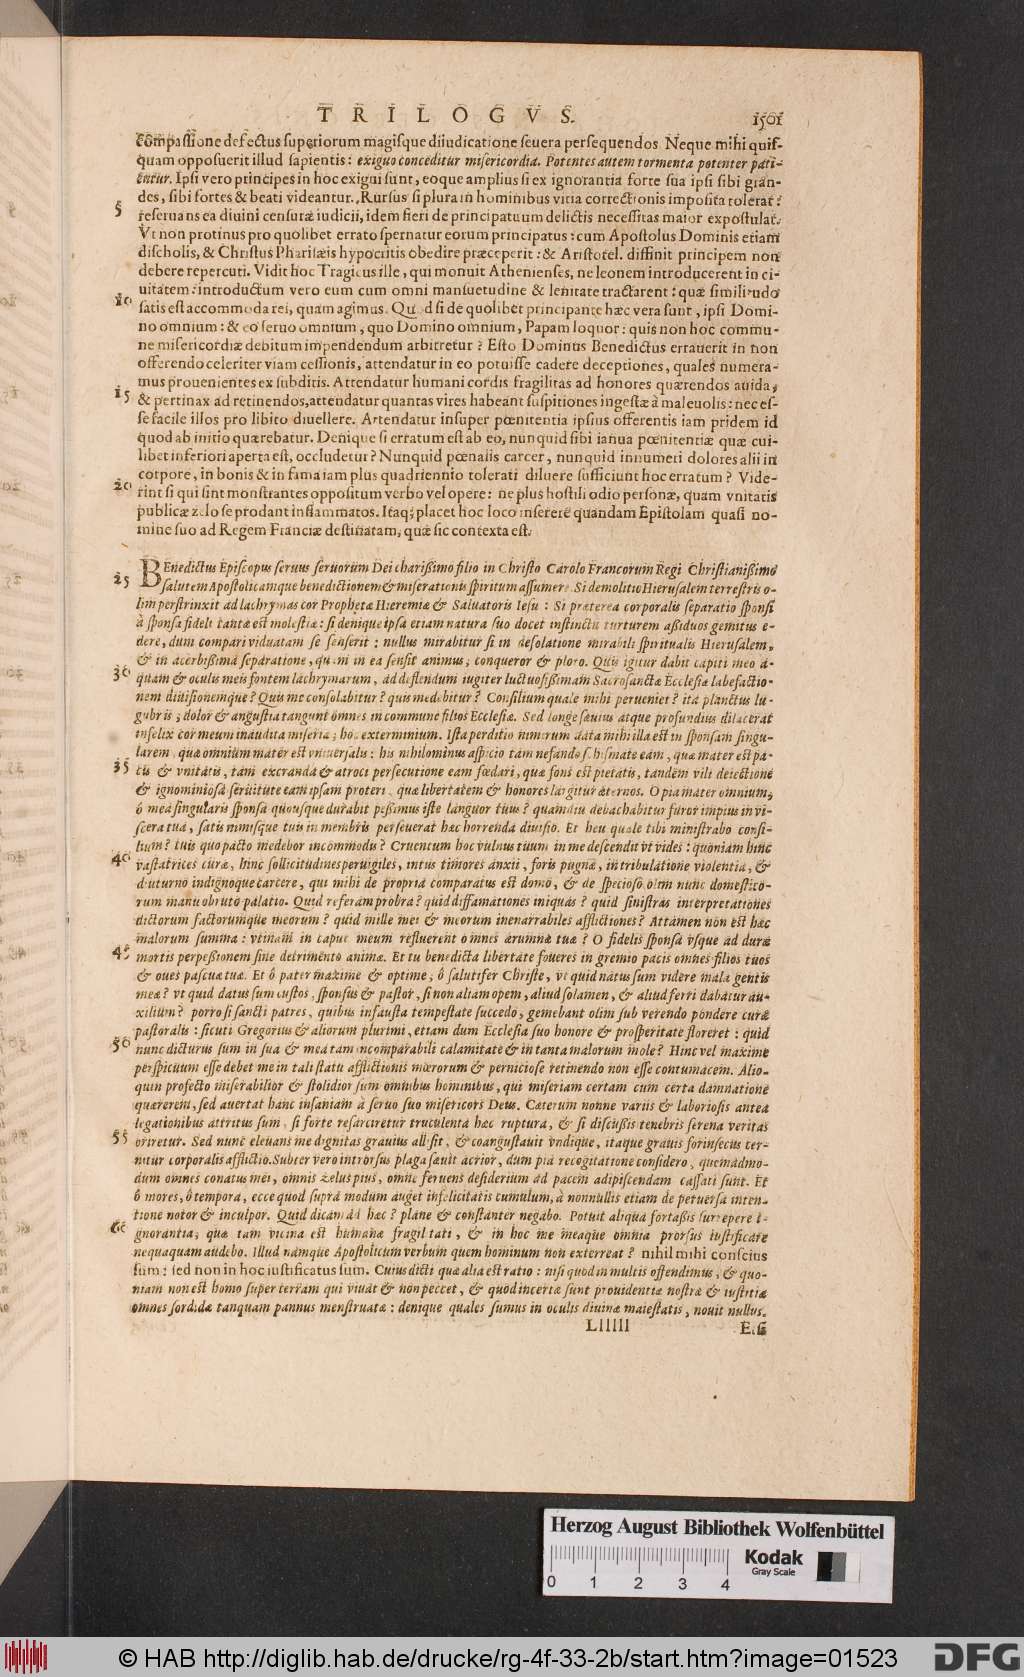 TRILOGVS.
1501
compassione defectus superiorum magisque diiudicatione seuera persequendos. Neque mihi quis-
quam opposuerit illud sapientis: exiguo conceditur misericordia. Potentes autem tormenta potenter pati-
entur. Ipsi vero principes in hoc exigui sunt, eoque amplius si ex ignorantia forte sua ipsi sibi gran-
des, sibi fortes & beati videantur. Rursus si plura in hominibus vitia correctionis imposita tolerat?
5
reseruans ea diuini censuræ iudicii, idem fieri de principatuum delictis necessitas maior expostulat.
Vt non protinus pro quolibet errato spernatur eorum principatus: cum Apostolus Dominis etiam
discholis, & Christus Pharisæis hypocritis obedire præceperit: & Aristotel. diffinit principem non
debere repercuti. Vidit hoc Tragicus ille, qui monuit Athenienses, ne leonem introducerent in ci-
uitatem: introductum vero eum cum omni mansuetudine & lenitate tractarent: quæ similitudo
10
satis est accommoda rei, quam agimus. Quod si de quolibet principante hæc vera sunt, ipsi Domi-
no omnium: & eo seruo omnium, quo Domino omnium, Papam loquor: quis non hoc commu-
ne misericordiæ debitum impendendum arbitretur? Esto Dominus Benedictus errauerit in non
offerendo celeriter viam cessionis, attendatur in eo potuisse cadere deceptiones, quales numera-
mus prouenientes ex subditis. Attendatur humani cordis fragilitas ad honores quærendos auida,
15
& pertinax ad retinendos, attendatur quantas vires habeant suspitiones ingestæ à maleuolis: nec es-
se facile illos pro libito diuellere. Attendatur insuper pœnitentia ipsius offerentis iam pridem id
quod ab initio quærebatur. Denique si erratum est ab eo, nunquid sibi ianua pœnitentiæ quæ cui-
libet inferiori aperta est, occludetur? Nunquid pœnalis carcer, nunquid innumeri dolores alii in
corpore, in bonis & in fama iam plus quadriennio tolerati diluere sufficiunt hoc erratum? Vide-
20
rint si qui sint monstrantes oppositum verbo vel opere: ne plus hostili odio personæ, quam vnitatis
publicæ zelo se prodant inflammatos. Itaq; placet hoc loco inserere quandam Epistolam quasi no-
mine suo ad Regem Franciæ destinatam, quæ sic contexta est.
BEnedictus Episcopus seruus seruorum Dei charißimo filio in Christo Carolo Francorum Regi Christianißimo
25
salutem Apostolicamque benedictionem & miserationis spiritum assumere. Si demolitio Hierusalem terrestris o-
lim perstrinxit ad lachrymas cor Prophetæ Hieremiæ & Saluatoris Iesu: Si præterea corporalis separatio sponsi
à sponsa fideli tantæ est molestiæ: si denique ipsa etiam natura suo docet instinctu turturem aßiduos gemitus e-
dere, dum compari viduatam se senserit: nullus mirabitur si in desolatione mirabili spiritualis Hierusalem,
& in acerbißima separatione, quam in ea sensit animus, conqueror & ploro. Quis igitur dabit capiti meo a-
30
quam & oculis meis fontem lachrymarum, ad deflendum iugiter luctuosißimam Sacrosanctæ Ecclesiæ labefactio-
nem diuisionemque? Quis me consolabitur? quis medebitur? Consilium quale mihi perueniet? ita planctus lu-
gubris, dolor & angustia tangunt omnes in commune filios Ecclesiæ. Sed longe sæuius atque profundius dilacerat
infelix cor meum inaudita miseria, hoc exterminium. Ista perditio nimirum data mihi illa est in sponsam singu-
larem, quæ omnium mater est vniuersalis: his nihilominus aspicio tam nefando schismate eam, quæ mater est pa-
35
cis & vnitatis, tam execranda & atroci persecutione eam fœdari, quæ fons est pietatis, tandem vili deiectione
& ignominiosa seruitute eam ipsam proteri, quæ libertatem & honores largitur æternos. O pia mater omnium,
ô mea singularis sponsa quousque durabit peßimus iste languor tuus? quamdiu debachabitur furor impius in vi-
scera tua, satis nimisque tuis in membris perseuerat hæc horrenda diuisio. Et heu quale tibi ministrabo consi-
lium? tuis quo pacto medebor incommodis? Cruentum hoc vulnus tuum in me descendit vt vides: quoniam hinc
40
vastatrices curæ, hinc sollicitudines peruigiles, intus timores anxii, foris pugnæ, in tribulatione violentia, &
diuturno indignoque carcere, qui mihi de propria comparatus est domo, & de specioso olim nunc domestico-
rum manu obruto palatio. Quid referam probra? quid diffamationes iniquas? quid sinistras interpretationes
dictorum factorumque meorum? quid mille mei & meorum inenarrabiles afflictiones? Attamen non est hæc
malorum summa: vtinam in caput meum refluerent omnes ærumnæ tuæ? O fidelis sponsa vsque ad duræ
45
mortis perpeßionem sine detrimento animæ. Et tu benedicta libertate foueres in gremio pacis omnes filios tuos
& oues pascuæ tuæ. Et ô pater maxime & optime, ô salutifer Christe, vt quid natus sum videre mala gentis
meæ? vt quid datus sum custos, sponsus & pastor, si non aliam opem, aliud solamen, & aliud ferri dabatur au-
xilium? porro si sancti patres, quibus infausta tempestate succedo, gemebant olim sub verendo pondere curæ
pastoralis: sicuti Gregorius & aliorum plurimi, etiam dum Ecclesia suo honore & prosperitate floreret: quid
50
nunc dicturus sum in sua & mea tam incomparabili calamitate & in tanta malorum mole? Hinc vel maxime
perspicuum esse debet me in tali statu afflictionis mœrorum & perniciose retinendo non esse contumacem. Alio-
quin profecto miserabilior & stolidior sum omnibus hominibus, qui miseriam certam cum certa damnatione
quærerem, sed auertat hanc insaniam à seruo suo misericors Deus. Cæterum nonne variis & laboriosis antea
legationibus attritus sum, si forte resarciretur truculenta hæc ruptura, & si discußis tenebris serena veritas
55
oriretur. Sed nunc eleuans me dignitas grauius allisit, & coangustauit vndique, itaque grauis forinsecus cer-
nitur corporalis afflictio. Subter vero introrsus plaga sæuit acrior, dum pia recogitatione considero, quemadmo-
dum omnes conatus mei, omnis zelus pius, omne feruens desiderium ad pacem adipiscendam cassati sunt. Et
ô mores, ô tempora, ecce quod supra modum auget infelicitatis cumulum, à nonnullis etiam de peruersa inten-
tione notor & inculpor. Quid dicam ad hæc? plane & constanter negabo. Potuit aliqua fortaßis surrepere i-
60
gnorantia, quæ tam vicina est humanæ fragilitati, & in hoc me meaque omnia prorsus iustificare
nequaquam audebo. Illud namque Apostolicum verbum quem hominum non exterreat? nihil mihi conscius
sum: sed non in hoc iustificatus sum. Cuius dicti quæ alia est ratio: nisi quod in multis offendimus, & quo-
niam non est homo super terram qui viuat & non peccet, & quod incertæ sunt prouidentiæ nostræ & iustitiæ
omnes sordidæ tanquam pannus menstruatæ: denique quales sumus in oculis diuinæ maiestatis, nouit nullus.
Lllll
Herzog August Bibliothek Wolfenbüttel
Kodak
Gray Scale
0 1 2 3 4
© HAB http://diglib.hab.de/drucke/rg-4f-33-2b/start.htm?image=01523
DFG